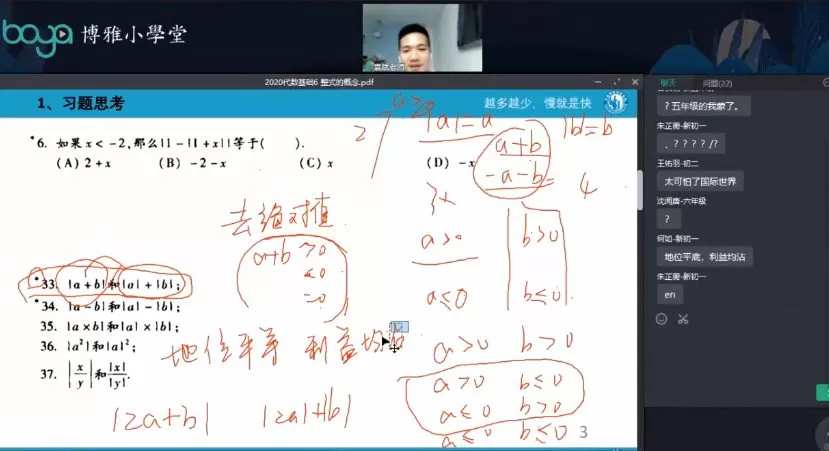 boya 博雅小學堂
袁斌老师
2020代数基础6 整式的概念.pdf
1、习题思考
越多越少，慢就是快
*6. 如果 x < -2,那么|1-|1+x||等于(    ).
(A) 2+x (B) -2-x (C) x (D) -x
|a|=a
|b|=b
a+b
-a-b
= 4
去绝对值
a+b >0
<0
=0
a>0 b>0
a≤0 b≤0
*33. |a+b|和|a|+|b|;
*34. |a-b|和|a|-|b|;
35. |a×b|和|a|×|b|;
36. |a²|和|a|²;
37. |x/y|和|x|/|y|.
地位平等 利益均沾
a>0 b>0
a>0 b≤0
a≤0 b>0
a≤0 b≤0
|2a+b| |2a|+|b|
3
聊天 问题(22)
？五年级的我蒙了。
朱芷蘅-新初一
．？？？？/?
王佑羽-初二
太可怕了国际世界
沈阅唐-六年级
?
何如-新初一
地位平底，利益均沾
朱芷蘅-新初一
en